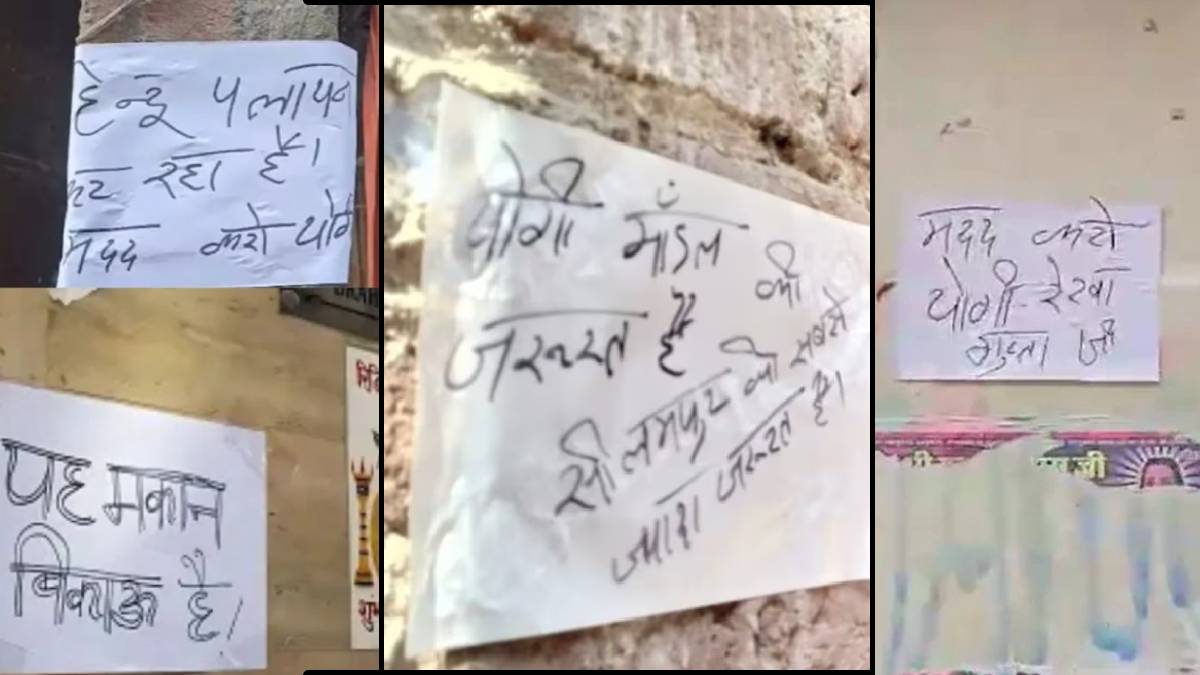 हिन्दू पलायन
कर रहा है।
मदद करो योगी
यह मकान
बिकाऊ है।
योगी मॉडल की
जरूरत है
सीलमपुर को सबसे
ज्यादा जरूरत है।
मदद करो
योगी रेखा
गुप्ता जी